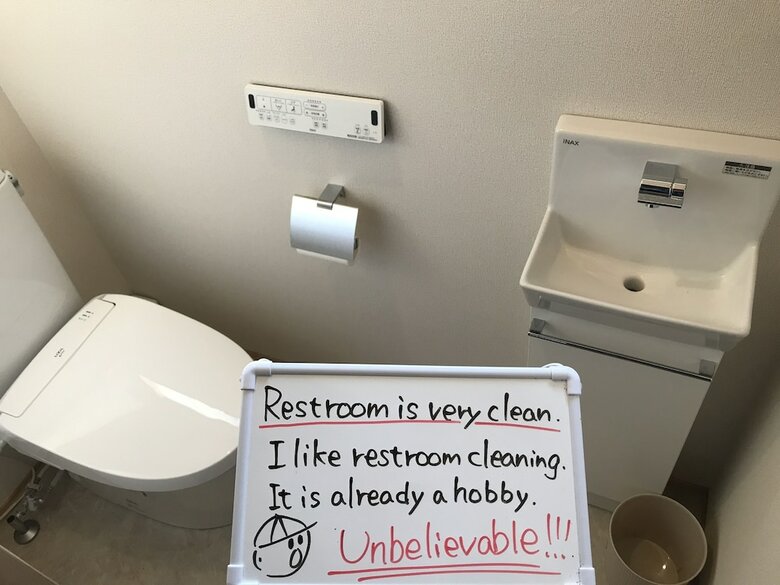 INAX
Restroom is very clean.
I like restroom cleaning.
It is already a hobby.
Unbelievable!!!